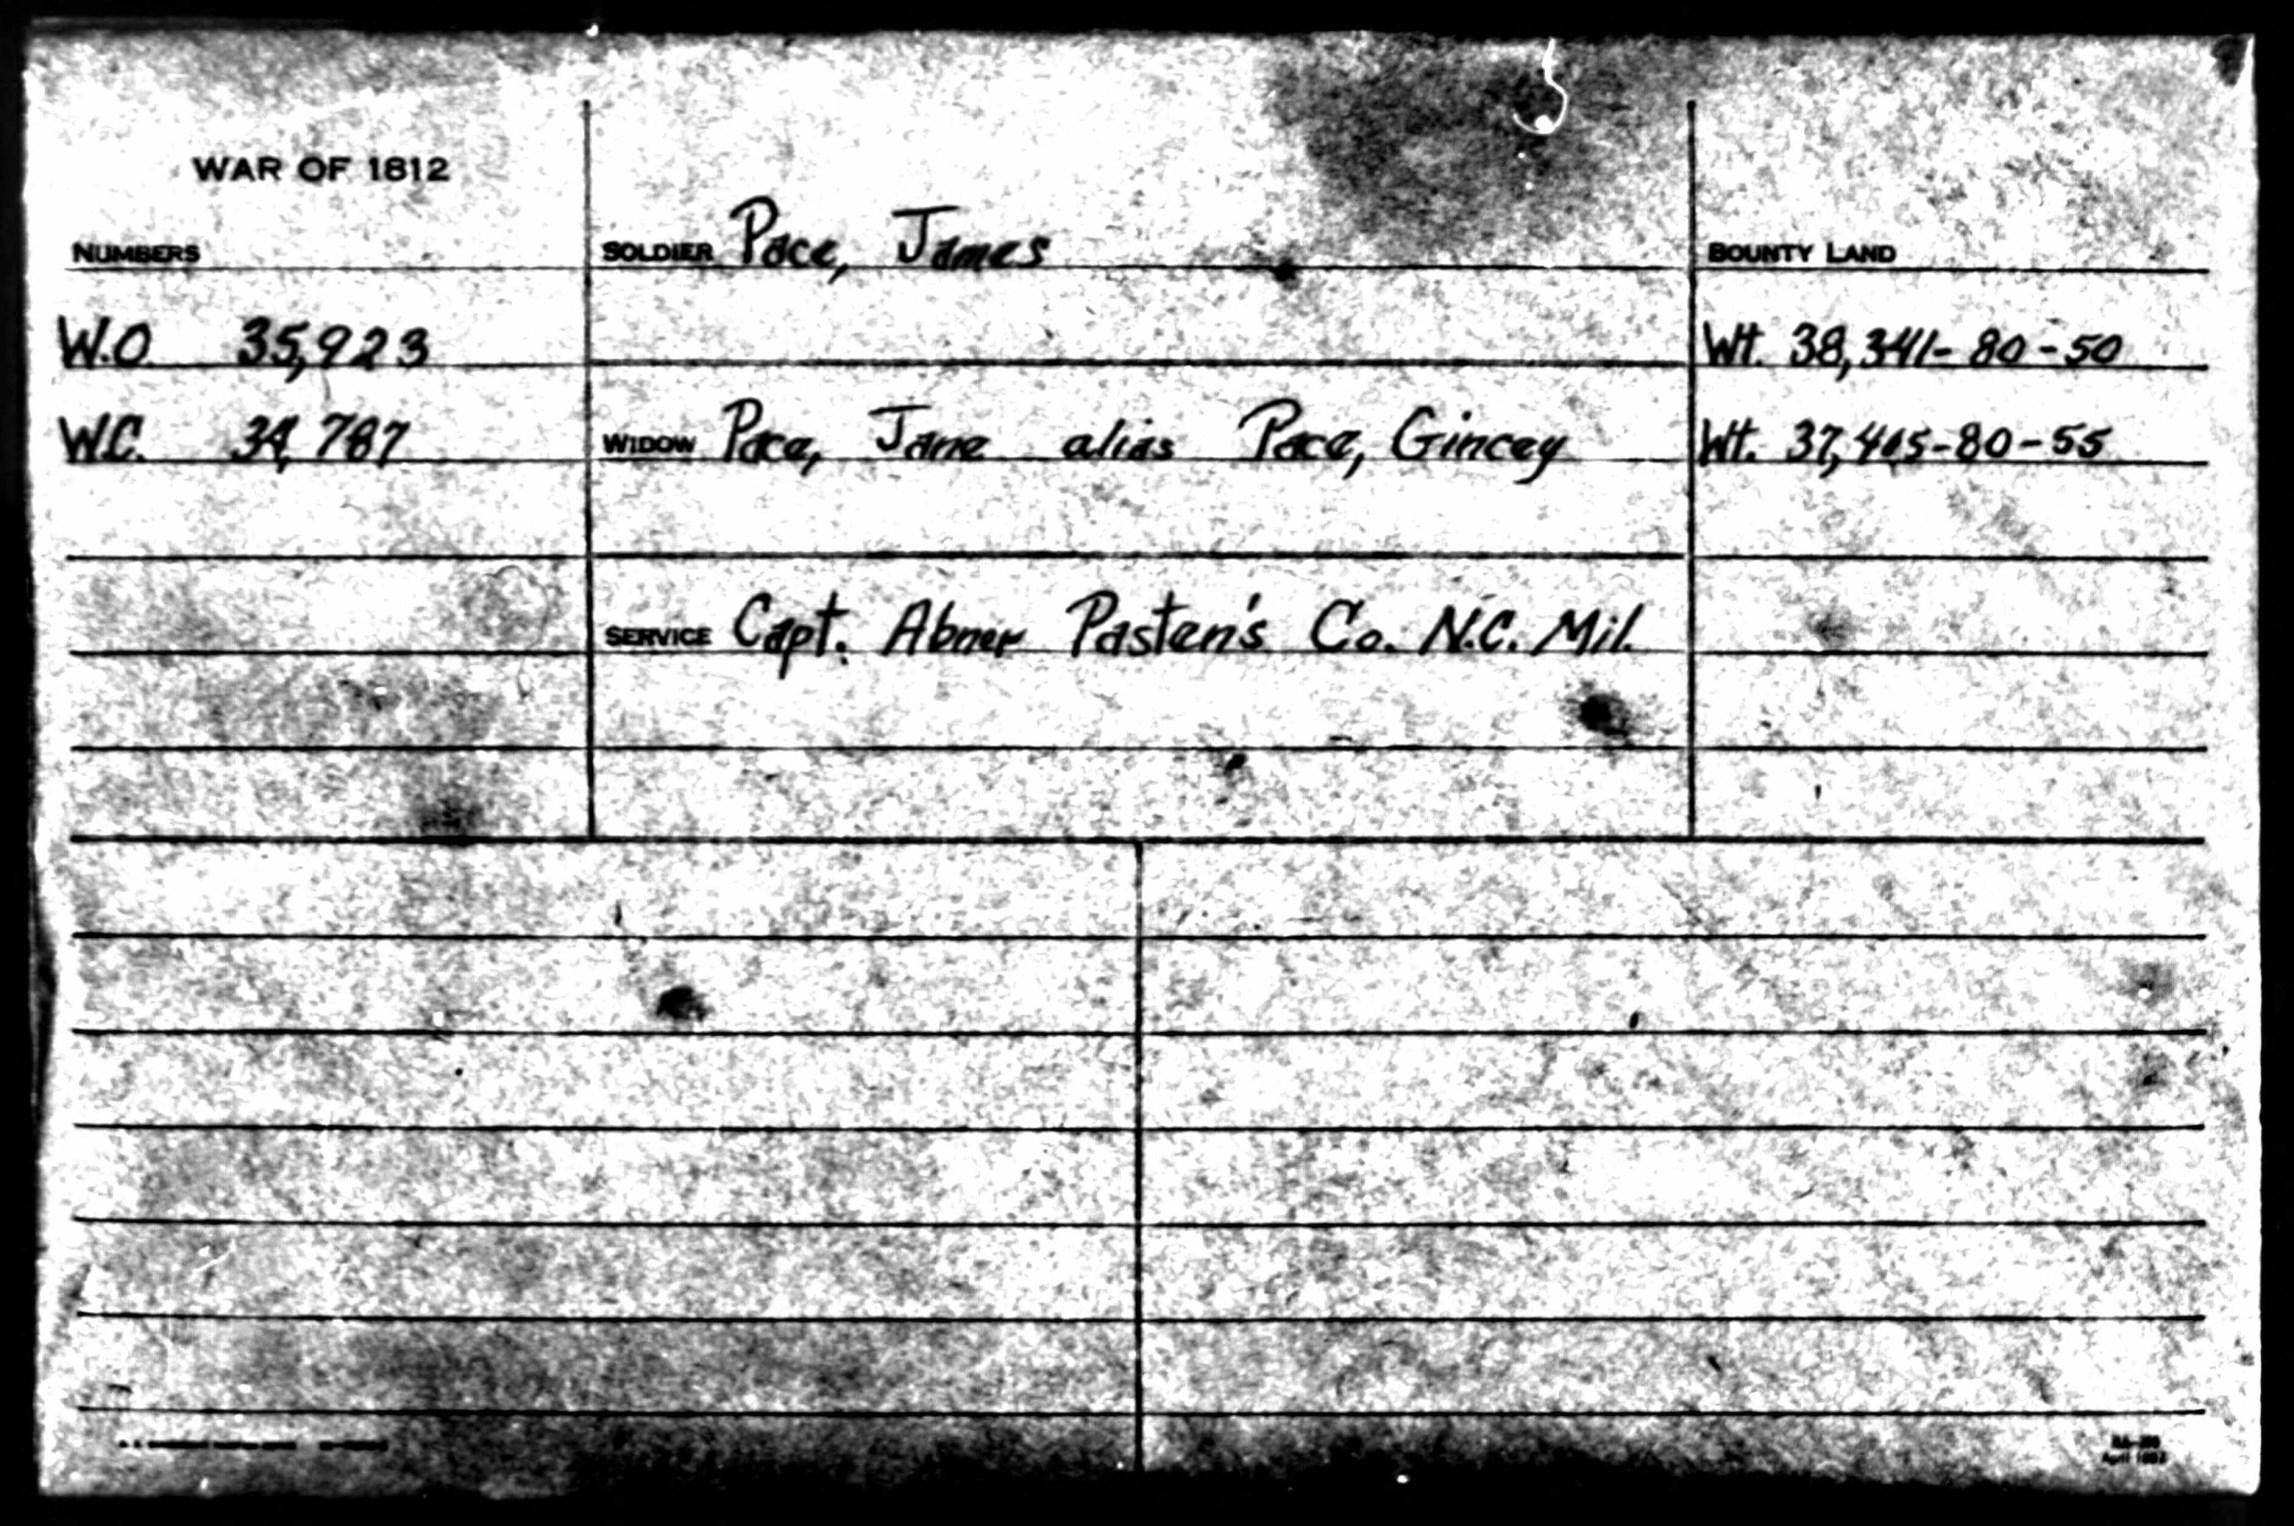 WAR OF 1812
NUMBERS
W.O. 35,923
W.C. 34,787
SOLDIER Pace, James
WIDOW Pace, Jane alias Pace, Gincey
SERVICE Capt. Abner Pasten's Co. N.C. Mil.
BOUNTY LAND
Wt. 38,341-80-50
Wt. 37,405-80-55